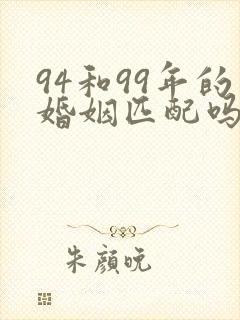 94和99年的
婚姻匹配吗
朱颜晚